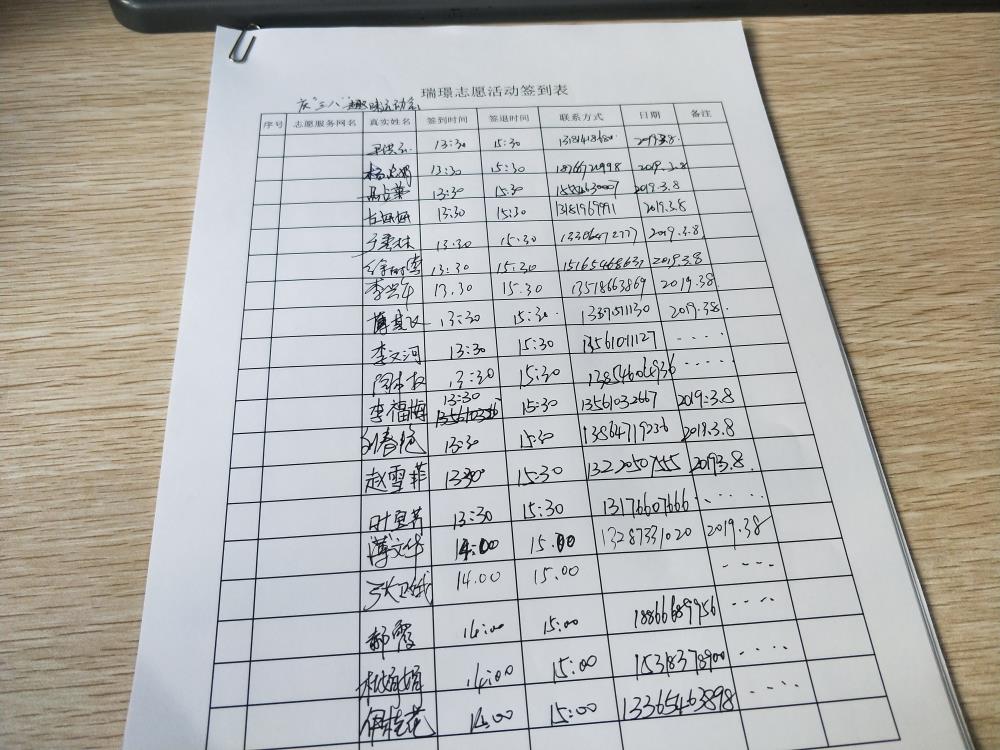 瑞璟志愿活动签到表
庆"三八"趣味运动会
序号 志愿服务网名 真实姓名 签到时间 签退时间 联系方式 日期 备注
13:30 15:30 2019.3.8
13:30 15:30 18766720998 2019.3.8
马占英 13:30 15:30 2019.3.8
13:30 15:30 13181969991 2019.3.8
13.30 15.30 13306472777 2019.3.8
13:30 15:30 15165468637 2019.3.8
李兴华 13.30 15.30 13518663869 2019.38
13:30 15:30 2019.38
李文河 13:30 15:30 13561011127 ....
13:30 15:30 13854606936 .....
李福梅 13:30 15:30 13561032667 2019.3.8
刘春艳 13:30 15:30 13864719236 2019.3.8
赵雪菲 13:30 15:30 13220507555 20193.8.
13:30 15:30 13176607666 ......
薄文华 14:00 15.00 13287331020 2019.38
张卫娥 14.00 15.00 ....
郝霞 14:00 15:00 18866689956 ....
14:00 15:00 15318378900 ....
伊桂花 14:00 15:00 13365463898 ....